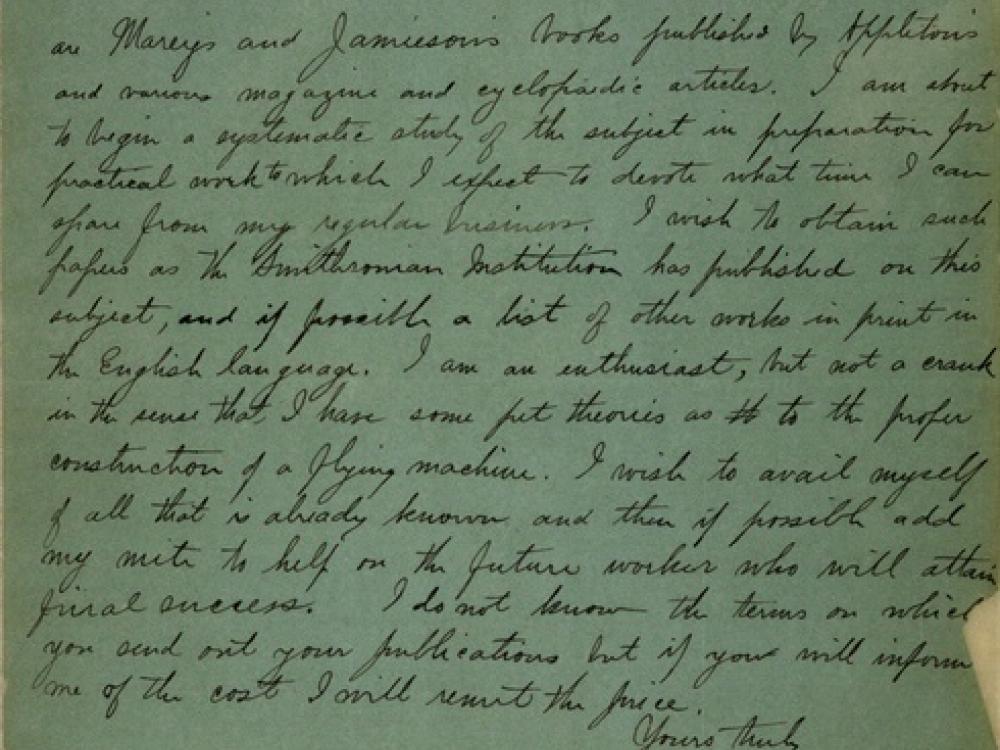 are Mareys and Jamiesons books published by Appletons
and various magazine and cyclopaedic articles. I am about
to begin a systematic study of the subject in preparation for
practical work to which I expect to devote what time I can
spare from my regular business. I wish to obtain such
papers as the Smithsonian Institution has published on this
subject, and if possible a list of other works in print in
the English language. I am an enthusiast, but not a crank
in the sense that I have some pet theories as to the proper
construction of a flying machine. I wish to avail myself
of all that is already known and then if possible add
my mite to help on the future worker who will attain
final success. I do not know the terms on which
you send out your publications but if you will inform
me of the cost I will remit the price.
Yours truly